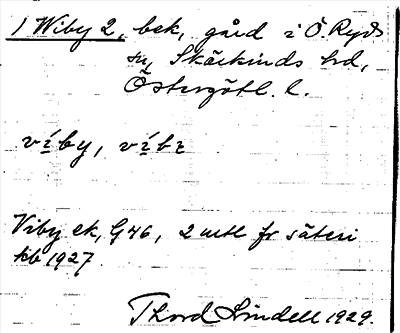 1 Wiby 2, bek, gård i Ö. Ryds
sn, Skärkinds hd,
Östergötl. l.
víby, víbɪ
Viby ek, G46, 2 mtl fr säteri
kb 1927.
Thord Lindell 1929.